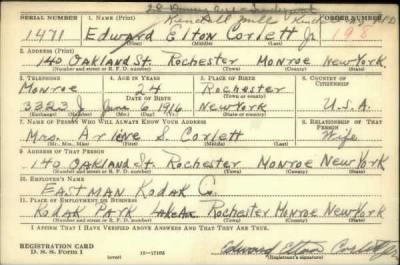 SERIAL NUMBER 1. NAME (Print) ORDER NUMBER
1471 Edward Elton Corlett Jr 198
(First) (Middle) (Last)
2. ADDRESS (Print)
140 Oakland St. Rochester Monroe New York
(Number and street or R. F. D. number) (Town) (County) (State)
3. TELEPHONE 4. AGE IN YEARS 5. PLACE OF BIRTH 6. COUNTRY OF CITIZENSHIP
Monroe 24 Rochester
DATE OF BIRTH
3323 J June 6 1916 New York U.S.A.
(Exchange) (Number) (Mo.) (Day) (Yr.) (State or country)
7. NAME OF PERSON WHO WILL ALWAYS KNOW YOUR ADDRESS 8. RELATIONSHIP OF THAT PERSON
Mrs. Arlene S. Corlett Wife
(Mr., Mrs., Miss) (First) (Middle) (Last)
9. ADDRESS OF THAT PERSON
140 Oakland St. Rochester Monroe New York
(Number and street or R. F. D. number) (Town) (County) (State)
10. EMPLOYER'S NAME
Eastman Kodak Co.
11. PLACE OF EMPLOYMENT OR BUSINESS
Kodak Park Lake Ave Rochester Monroe New York
(Number and street or R. F. D. number) (Town) (County) (State)
I AFFIRM THAT I HAVE VERIFIED ABOVE ANSWERS AND THAT THEY ARE TRUE.
REGISTRATION CARD
D. S. S. Form 1 (over) Edward Elton Corlett Jr
(Registrant's signature)